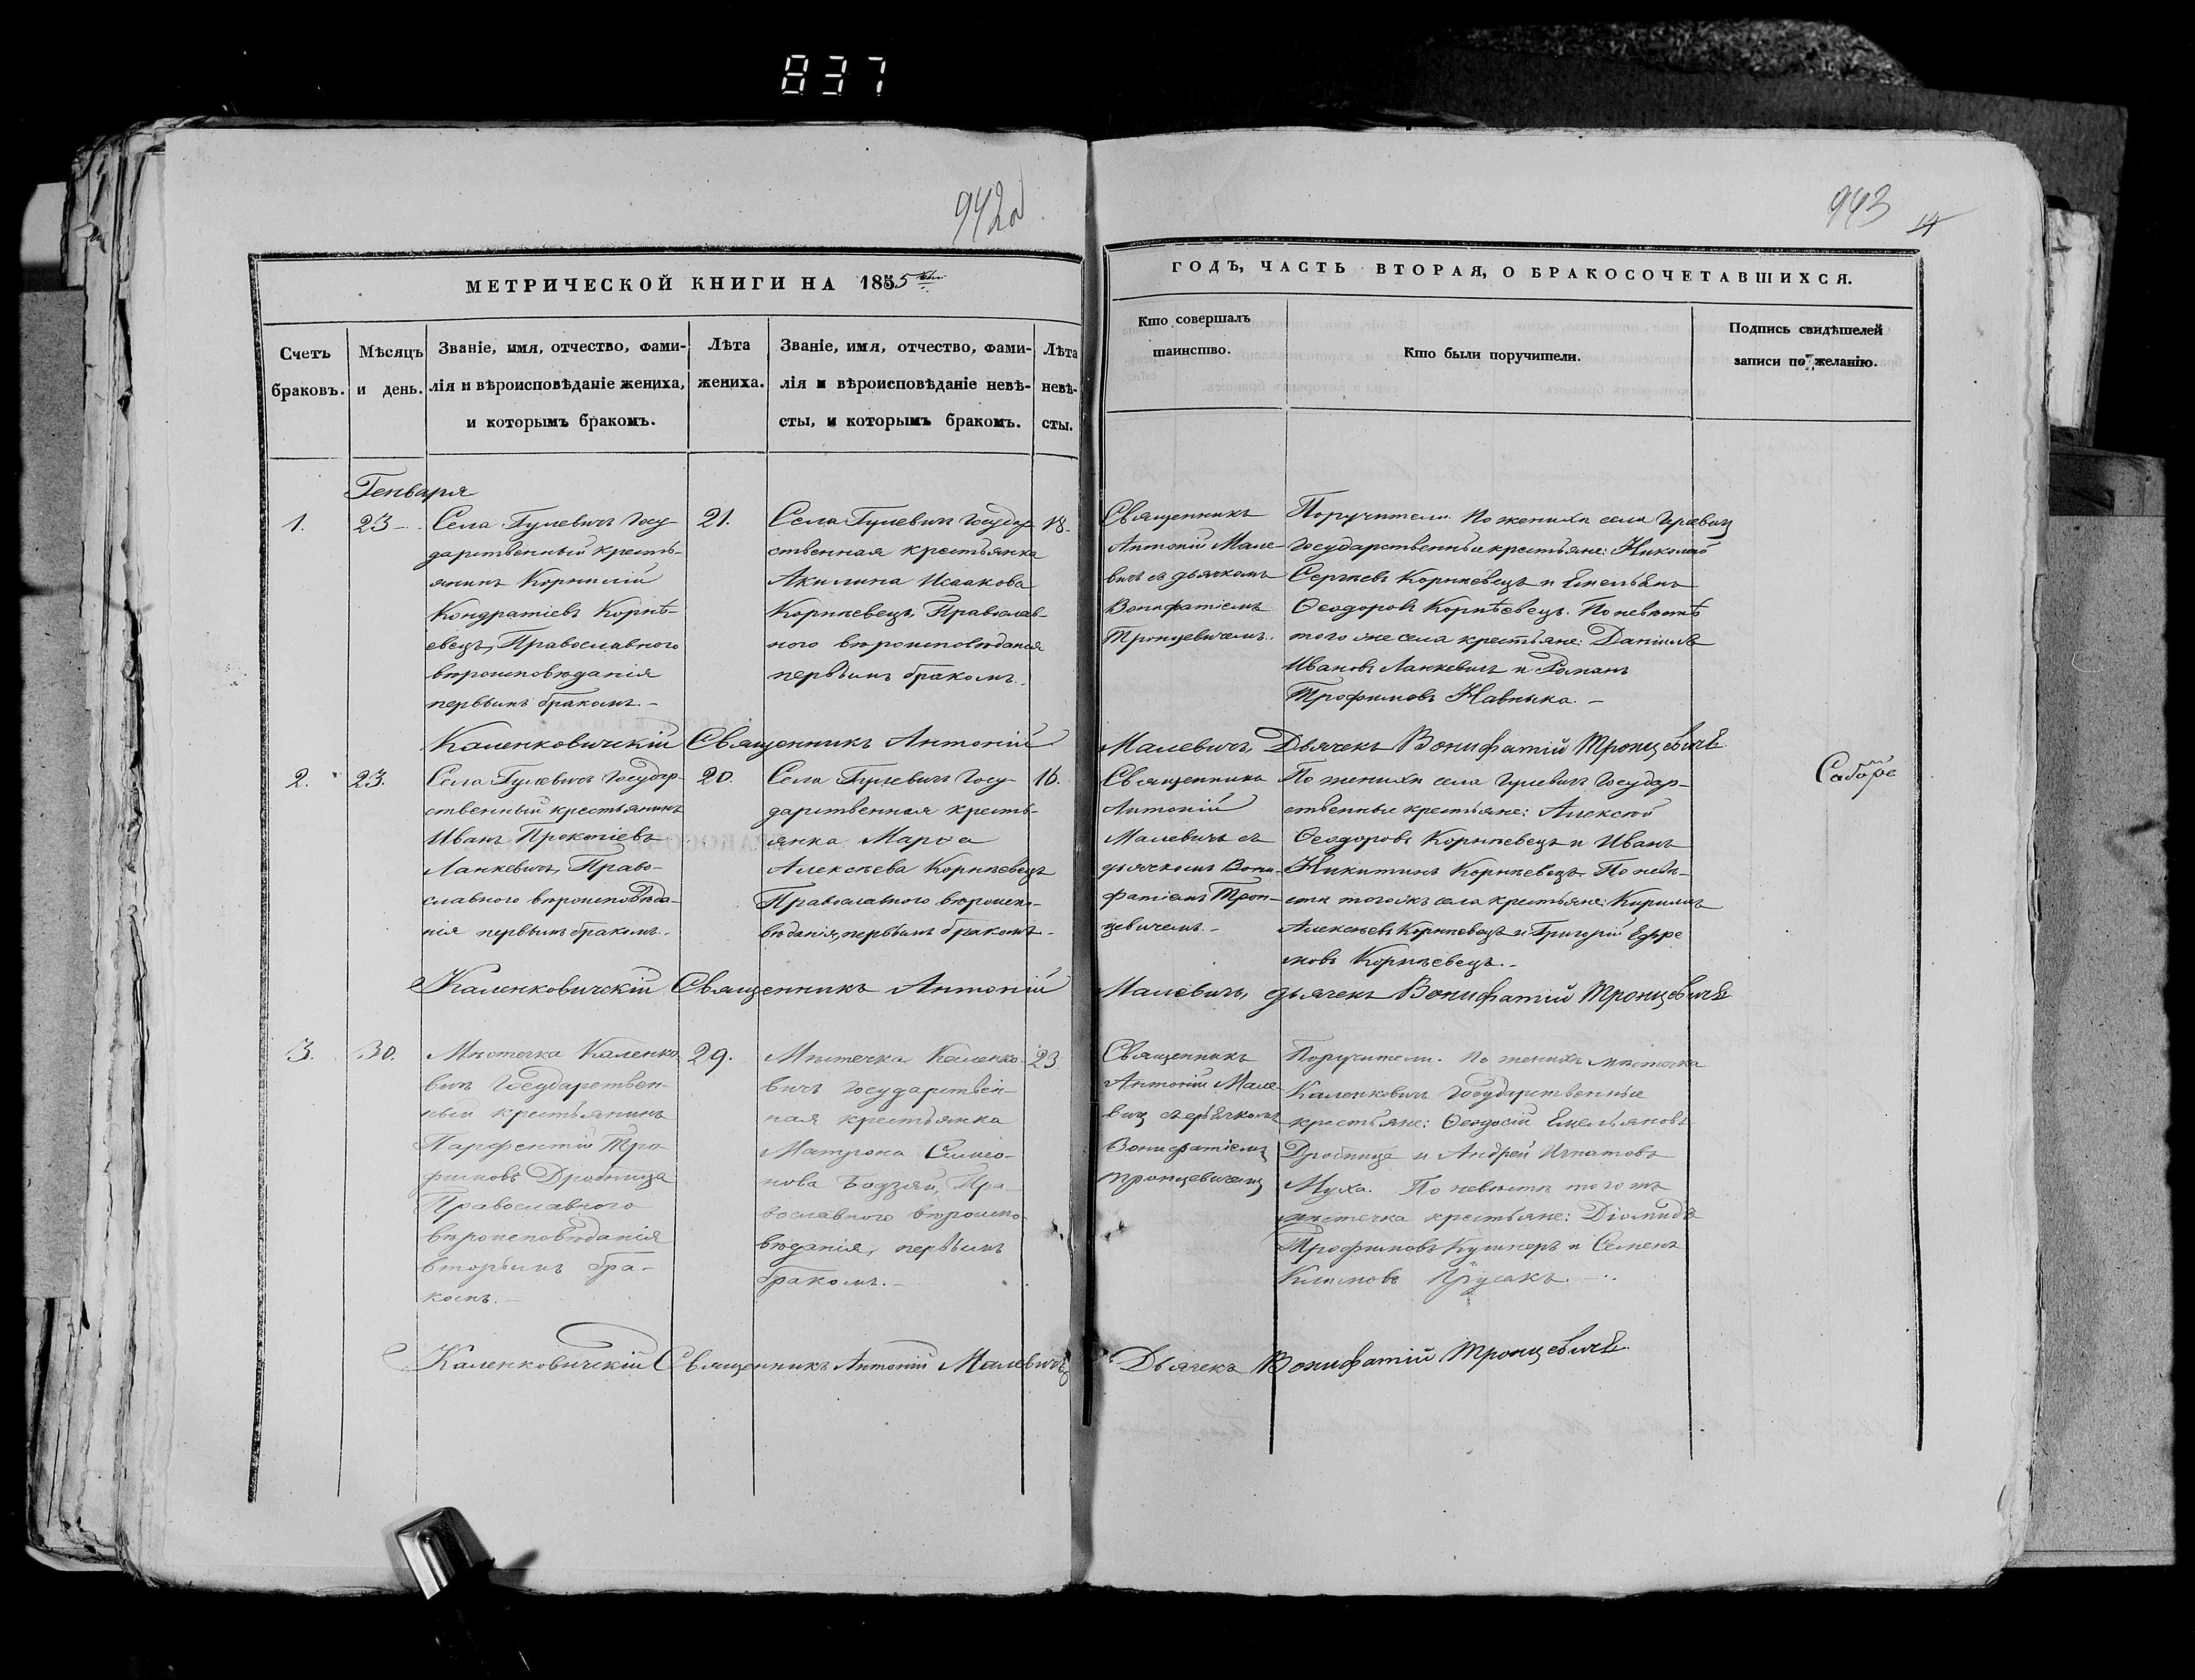 837
942об
943
14
МЕТРИЧЕСКОЙ КНИГИ НА 1855
Счетъ
браковъ.
Мѣсяцъ
и день.
Званіе, имя, отчество, фами-
лія и вѣроисповѣданіе жениха,
и которымъ бракомъ.
Лѣта
жениха.
Званіе, имя, отчество, фами-
лія и вѣроисповѣданіе невѣ-
сты, и которымъ бракомъ.
Лѣта
невѣ-
сты.
ГОДЪ, ЧАСТЬ ВТОРАЯ, О БРАКОСОЧЕТАВШИХСЯ.
Кто совершалъ
таинство.
Кто были поручители.
Подпись свидѣтелей
записи по желанію.
Генваря
1.
23
Села Гулевичъ Госу-
дарственный кресть-
янинъ Корнилій
Кондратіевъ Корнѣ-
евецъ, Православного
вѣроисповѣданія
первымъ бракомъ.-
21.
Села Гулевичъ Государ
ственная крестьянка
Акилина Исаакова
Корнѣевецъ, Православ-
ного вѣроисповѣданія
первымъ бракомъ.
18.
Священникъ
Антоній Мале-
вичъ съ дьячкомъ
Вонифатіемъ
Тронцевичемъ.
Поручители. По женихѣ села Гулевич
Государственные крестьяне: Николай
Сергѣевъ Корнѣевецъ и Емельянъ
Ѳеодоровъ Корнѣевецъ. По невѣстѣ
того же села крестьяне: Даніилъ
Ивановъ Лапкевичъ и Романъ
Трофимовъ Навныка.-
Каленковичскій Священникъ Антоній
Малевичъ, Дьячекъ Вонифатій Тронцевичъ
2.
23.
Села Гулевичъ Государ-
ственный крестьянинъ
Иванъ Прокопіевъ
Лапкевичъ, Право-
славного вѣроисповѣда-
нія первымъ бракомъ.-
20.
Села Гулевичъ Госу-
дарственная кресть-
янка Марѳа
Алексѣева Корнѣевецъ
Православного вѣроиспо-
вѣданія, первымъ бракомъ.-
16.
Священникъ
Антоній
Малевичъ съ
дьячкомъ Вони-
фатіемъ Трон-
цевичемъ.-
По женихѣ села Гулевичъ Государ-
ственные крестьяне: Алексей
Ѳеодоровъ Корнѣевецъ и Иванъ
Никитинъ Корнѣевецъ. По невѣ-
стѣ тогожъ села крестьяне: Кириллъ
Алексѣевъ Корнѣевецъ и Григорій Ефре
мовъ Корнѣевецъ.-
Каленковичскій Священникъ Антоній
Малевичъ, дьячекъ Вонифатій Тронцевичъ
3.
30.
Мѣстечка Каленко-
вичъ Государствен-
ный крестьянинъ
Парфентій Тро-
фимовъ Дробница
Православного
вѣроисповѣданія
вторымъ бра-
комъ.-
29.
Мѣстечка Каленко-
вичъ Государствен-
ная крестьянка
Матрона Симео-
нова Бодзяй, Пра-
вославного вѣроиспо-
вѣданія, первымъ
бракомъ.-
23
Священникъ
Антоній Мале-
вич съ дьячкомъ
Вонифатіемъ
Тронцевичемъ
Поручители. По женихѣ мѣстечка
Каленковичъ Государственные
крестьяне: Ѳеодосій Емельяновъ
Дробница и Андрей Игнатовъ
Муха. По невѣстѣ тогожъ
мѣстечка крестьяне: Діомидъ
Трофимовъ Кушнеръ и Семенъ
Климовъ Прусакъ.-
Каленковичскій Священникъ Антоній Малевичъ
Дьячекъ Вонифатій Тронцевичъ